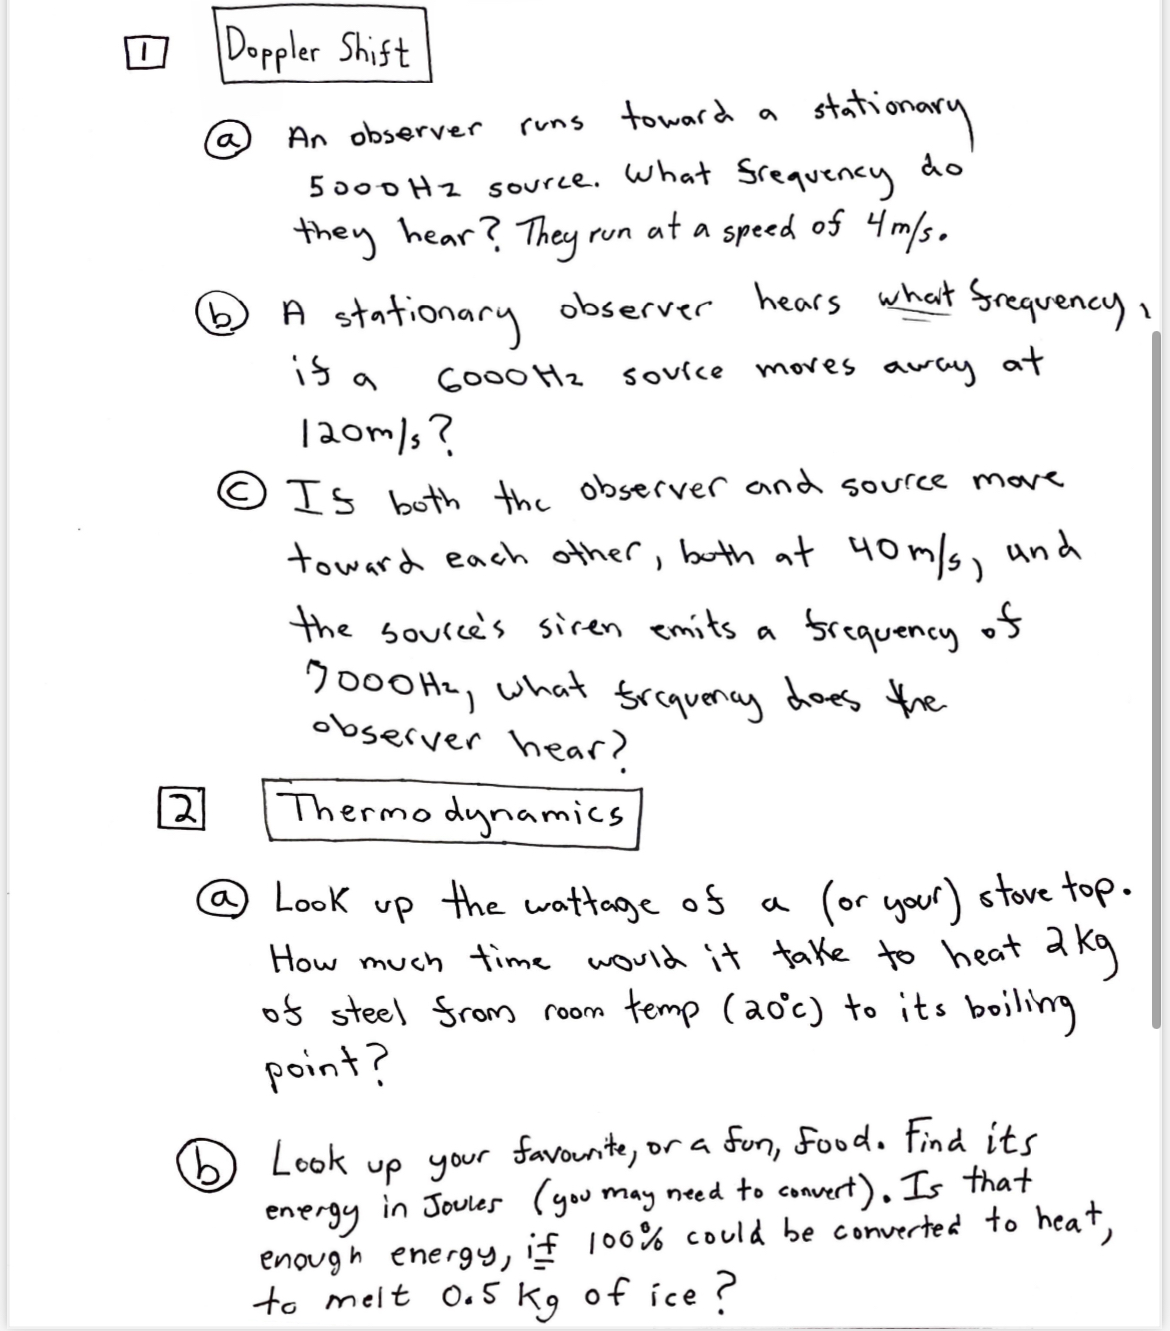 1 Doppler Shift
a An observer runs toward a stationary
5000Hz source. What frequency do
they hear? They run at a speed of 4m/s.
b A stationary observer hears what frequency,
if a 6000Hz source moves away at
120m/s?
c If both the observer and source move
toward each other, both at 40m/s, and
the source's siren emits a frequency of
7000Hz, what frequency does the
observer hear?
2 Thermodynamics
a Look up the wattage of a (or your) stove top.
How much time would it take to heat 2kg
of steel from room temp (20°C) to its boiling
point?
b Look up your favourite, or a fun, food. Find its
energy in Joules (you may need to convert). Is that
enough energy, if 100% could be converted to heat,
to melt 0.5 kg of ice?